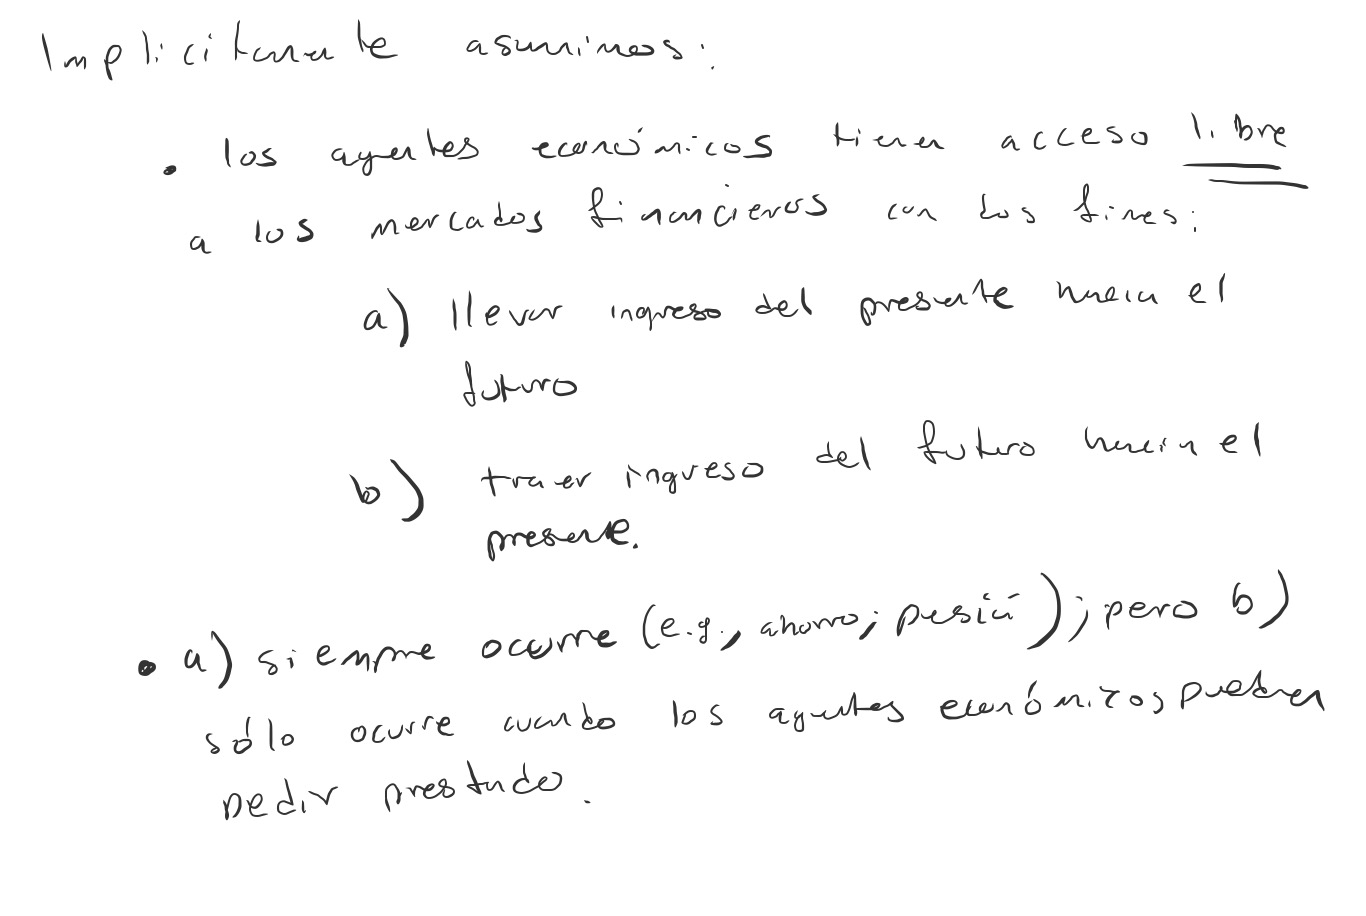 Implícitamente asumimos:
• los agentes económicos tienen acceso libre
a los mercados financieros con dos fines:
a) llevar ingreso del presente hacia el
futuro
b) traer ingreso del futuro hacia el
presente.
• a) siempre ocurre (e.g., ahorro; pensión); pero b)
sólo ocurre cuando los agentes económicos puedan
pedir prestado.